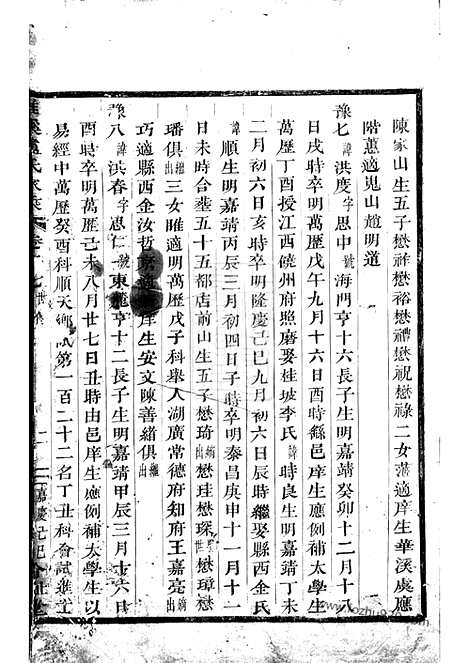 陳家山生五子懋祥懋裕懋禮懋祝懋祿二女藻適庠生華溪處應
階蕙適嵬山趙明道
豫七諱洪度字思中號海門亨十六長子生明嘉靖癸卯十二月十八
日戌時卒明萬歷戊午九月十六日酉時繇邑庠生應例補太學生
萬歷丁酉授江西饒州府照磨娶桂坡李氏諱時良生明嘉靖丁未
二月初六日亥時卒明隆慶己巳九月初六日辰時繼娶縣西金氏
諱順生明嘉靖丙辰三月初四日子時卒明泰昌庚申十一月十一
日未時合塟五十五都店前山生五子懋琦出嫡懋珪懋琛懋璋懋
璠俱出繼三女雎適萬歷戊子科舉人湖廣常德府知府王嘉亮出嫡
巧適縣西金汝哲適庠生安文陳善緒俱出繼
豫八諱洪春字思仁號東亨十二長子生明嘉靖甲辰三月十六日
酉時卒明萬歷己未八月廿七日丑時由邑庠生應例補太學生以
易經中萬歷癸酉科順天鄉試第一百二十二名丁丑科會試進士
氏
嘉慶己巳